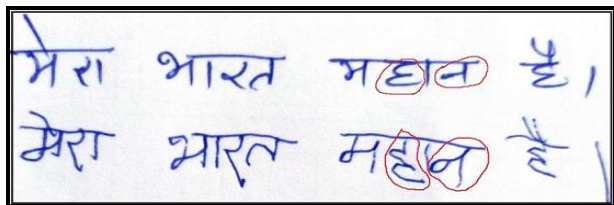 मेरा भारत महान है।
मेरा भारत महान है।